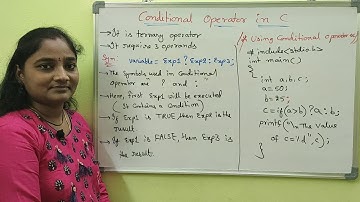 Conditional Operator in C
→ It is ternary operator
→ It requires 3 operands
Syn: variable = Exp1 ? Exp2 : Exp3;
→ The Symbols used in Conditional
operator are ? and :
→ Here, first Exp1 will be executed
(It Contains a Condition)
→ If Exp1 is TRUE, then Exp2 is the
result.
→ If Exp1 is FALSE, then Exp3 is
the result.
/* Using Conditional operator */
#include<stdio.h>
int main()
{
int a,b,c;
a=50;
b=25;
c=if(a>b)?a:b;
printf("\n The value
of c=%d",c);
}